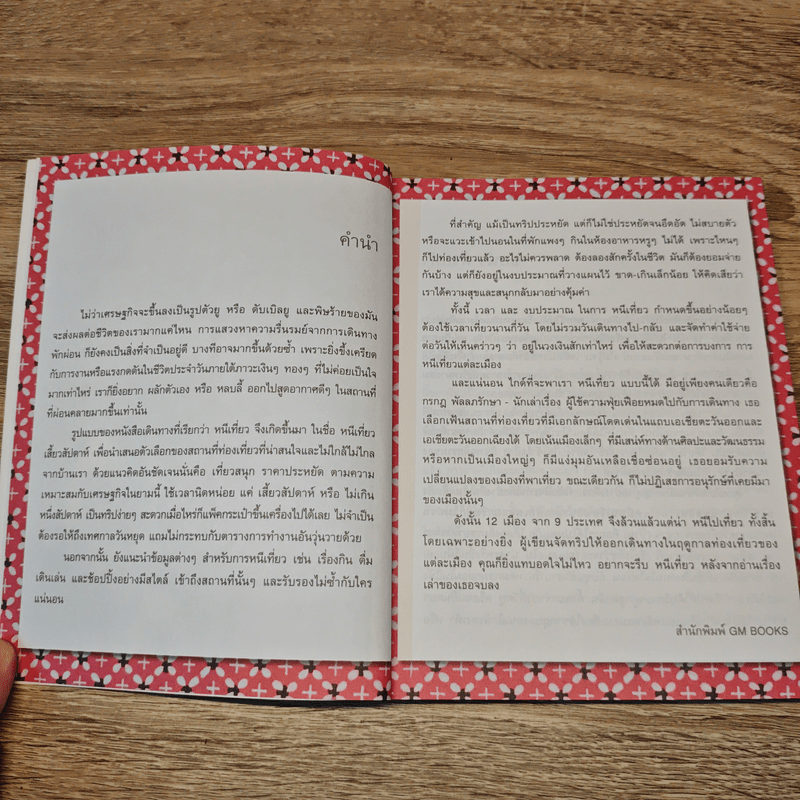 คำนำ
ไม่ว่าเศรษฐกิจจะขึ้นลงเป็นรูปตัวยู หรือ ดับเบิลยู และพิษร้ายของมัน
จะส่งผลต่อชีวิตของเรามากแค่ไหน การแสวงหาความรื่นรมย์จากการเดินทาง
พักผ่อน ก็ยังคงเป็นสิ่งที่จำเป็นอยู่ดี บางทีอาจมากขึ้นด้วยซ้ำ เพราะยิ่งขึ้งเครียด
กับการงานหรือแรงกดดันในชีวิตประจำวันภายใต้ภาวะเงินๆ ทองๆ ที่ไม่ค่อยเป็นใจ
มากเท่าไหร่ เราก็ยิ่งอยาก ผลักตัวเอง หรือ หลบลี้ ออกไปสูดอากาศดีๆ ในสถานที่
ที่ผ่อนคลายมากขึ้นเท่านั้น
รูปแบบของหนังสือเดินทางที่เรียกว่า หนีเที่ยว จึงเกิดขึ้นมา ในชื่อ หนีเที่ยว
เสี้ยวสัปดาห์ เพื่อนำเสนอตัวเลือกของสถานที่ท่องเที่ยวที่น่าสนใจและไม่ใกล้ไม่ไกล
จากบ้านเรา ด้วยแนวคิดอันชัดเจนนั่นคือ เที่ยวสนุก ราคาประหยัด ตามความ
เหมาะสมกับเศรษฐกิจในยามนี้ ใช้เวลานิดหน่อย แค่ เสี้ยวสัปดาห์ หรือ ไม่เกิน
หนึ่งสัปดาห์ เป็นทริปง่ายๆ สะดวกเมื่อไหร่ก็แพ็คกระเป๋าขึ้นเครื่องไปได้เลย ไม่จำเป็น
ต้องรอให้ถึงเทศกาลวันหยุด แถมไม่กระทบกับตารางการทำงานอันวุ่นวายด้วย
นอกจากนั้น ยังแนะนำข้อมูลต่างๆ สำหรับการหนีเที่ยว เช่น เรื่องกิน ดื่ม
เดินเล่น และช้อปปิ้งอย่างมีสไตล์ เข้าถึงสถานที่นั้นๆ และรับรองไม่ซ้ำกับใคร
แน่นอน
ที่สำคัญ แม้เป็นทริปประหยัด แต่ก็ไม่ใช่ประหยัดจนอึดอัด ไม่สบายตัว
หรือจะแวะเข้าไปนอนในที่พักแพงๆ กินในห้องอาหารหรูๆ ไม่ได้ เพราะไหนๆ
ก็ไปท่องเที่ยวแล้ว อะไรไม่ควรพลาด ต้องลองสักครั้งในชีวิต มันก็ต้องยอมจ่าย
กันบ้าง แต่ก็ยังอยู่ในงบประมาณที่วางแผนไว้ ขาด-เกินเล็กน้อย ให้คิดเสียว่า
เราได้ความสุขและสนุกกลับมาอย่างคุ้มค่า
ทั้งนี้ เวลา และ งบประมาณ ในการ หนีเที่ยว กำหนดขึ้นอย่างน้อยๆ
ต้องใช้เวลาเที่ยวนานกี่วัน โดยไม่รวมวันเดินทางไป-กลับ และจัดทำค่าใช้จ่าย
ต่อวันให้เห็นคร่าวๆ ว่า อยู่ในวงเงินสักเท่าไหร่ เพื่อให้สะดวกต่อการบงการ การ
หนีเที่ยวแต่ละเมือง
และแน่นอน ไกด์ที่จะพาเรา หนีเที่ยว แบบนี้ได้ มีอยู่เพียงคนเดียวคือ
กรกฎ พัลลภรักษา - นักเล่าเรื่อง ผู้ใช้ความฟุ่มเฟือยหมดไปกับการเดินทาง เธอ
เลือกเฟ้นสถานที่ท่องเที่ยวที่มีเอกลักษณ์โดดเด่นในแถบเอเชียตะวันออกและ
เอเชียตะวันออกเฉียงใต้ โดยเน้นเมืองเล็กๆ ที่มีเสน่ห์ทางด้านศิลปะและวัฒนธรรม
หรือหากเป็นเมืองใหญ่ๆ ก็มีแง่มุมอันเหลือเชื่อซ่อนอยู่ เธอยอมรับความ
เปลี่ยนแปลงของเมืองที่พาเที่ยว ขณะเดียวกัน ก็ไม่ปฏิเสธการอนุรักษ์ที่เคยมีมา
ของเมืองนั้นๆ
ดังนั้น 12 เมือง จาก 9 ประเทศ จึงล้วนแล้วแต่น่า หนีไปเที่ยว ทั้งสิ้น
โดยเฉพาะอย่างยิ่ง ผู้เขียนจัดทริปให้ออกเดินทางในฤดูกาลท่องเที่ยวของ
แต่ละเมือง คุณก็ยิ่งแทบอดใจไม่ไหว อยากจะรีบ หนีเที่ยว หลังจากอ่านเรื่อง
เล่าของเธอจบลง
สำนักพิมพ์ GM BOOKS